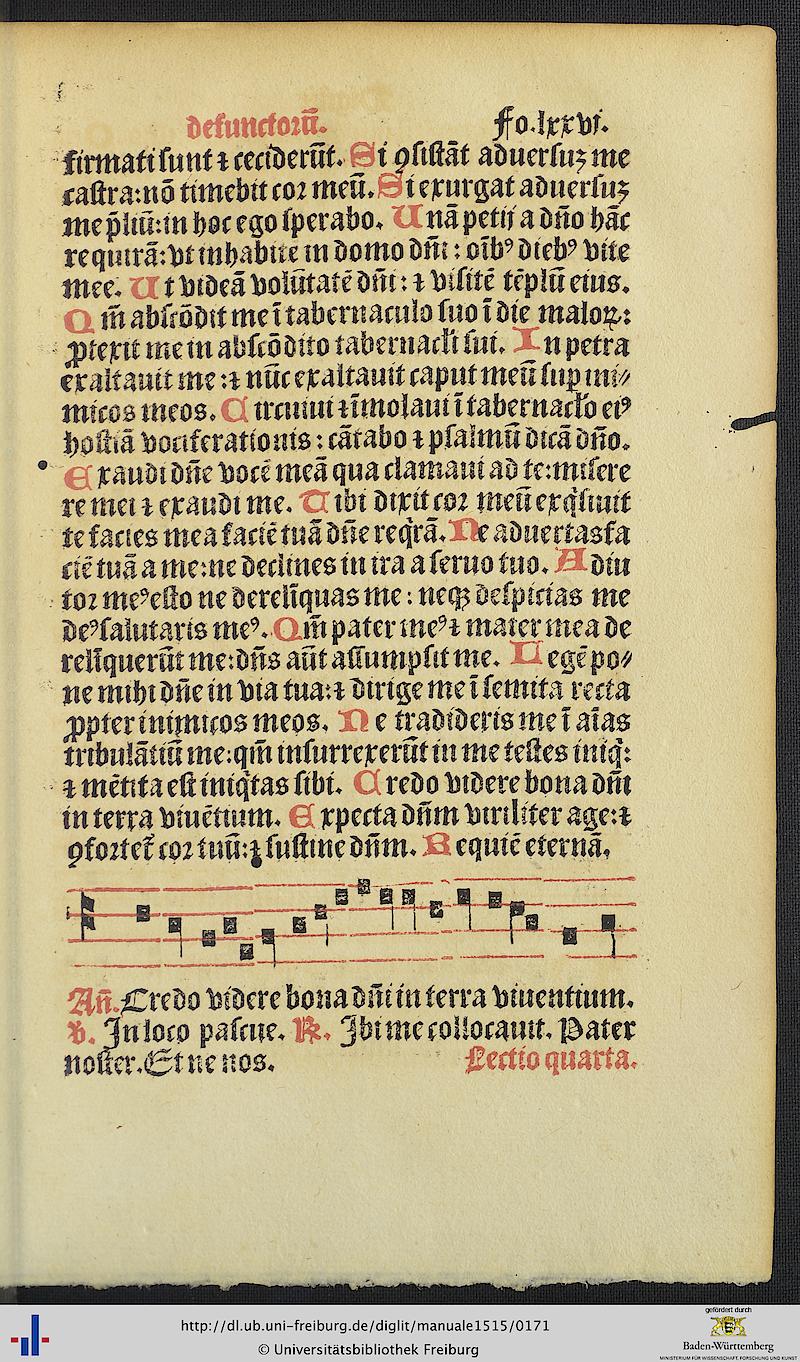 defunctorū.
fo.lxxvi.
firmati sunt ⁊ ceciderūt. Si ꝯsistāt aduersuꝫ me
castra:nō timebit cor meū. Si exurgat aduersuꝫ
me p̄liū:in hoc ego sperabo. Unā petij a dn̄o hāc
requirā:vt inhabite in domo dn̄i : oīb⁹ dieb⁹ vite
mee. Ut videā volūtatē dn̄i : ⁊ visitē tēplū eius.
Qm̄ abscōdit me ī tabernaculo suo ī die maloꝝ:
ꝓtexit me in abscōdito tabernacl̄i sui. In petra
exaltauit me :⁊ nūc exaltauit caput meū suꝑ ini⸗
micos meos. Circuiui ⁊ īmolaui ī tabernacl̄o ei⁹
hostiā vociferationis : cātabo ⁊ psalmū dicā dn̄o.
Exaudi dn̄e vocē meā qua clamaui ad te:misere
re mei ⁊ exaudi me. Tibi dixit cor meū exq̇siuit
te facies mea faciē tuā dn̄e req̇rā. Ne aduertas fa
ciē tuā a me:ne declines in ira a seruo tuo. Adiu
tor me⁹ esto ne derelīquas me : neqꝫ despicias me
de⁹ salutaris me⁹. Qm̄ pater me⁹ ⁊ mater mea de
relīquerūt me:dn̄s aūt assumpsit me. Legē po⸗
ne mihi dn̄e in via tua:⁊ dirige me ī semita recta
ꝓpter inimicos meos. Ne tradideris me ī aīas
tribulātiū me:qm̄ insurrexerūt in me testes iniq̇:
⁊ mētita est iniq̇tas sibi. Credo videre bona dn̄i
in terra viuētium. Expecta dn̄m viriliter age:⁊
ꝯfortet̄ cor tuū:⁊ sustine dn̄m. Requiē eternā.
An̄. Credo videre bona dn̄i in terra viuentium.
v. In loco pascue. ℟. Ibi me collocauit. Pater
noster. Et ne nos. Lectio quarta.
http://dl.ub.uni-freiburg.de/diglit/manuale1515/0171
© Universitätsbibliothek Freiburg
gefördert durch
Baden-Württemberg
MINISTERIUM FÜR WISSENSCHAFT, FORSCHUNG UND KUNST